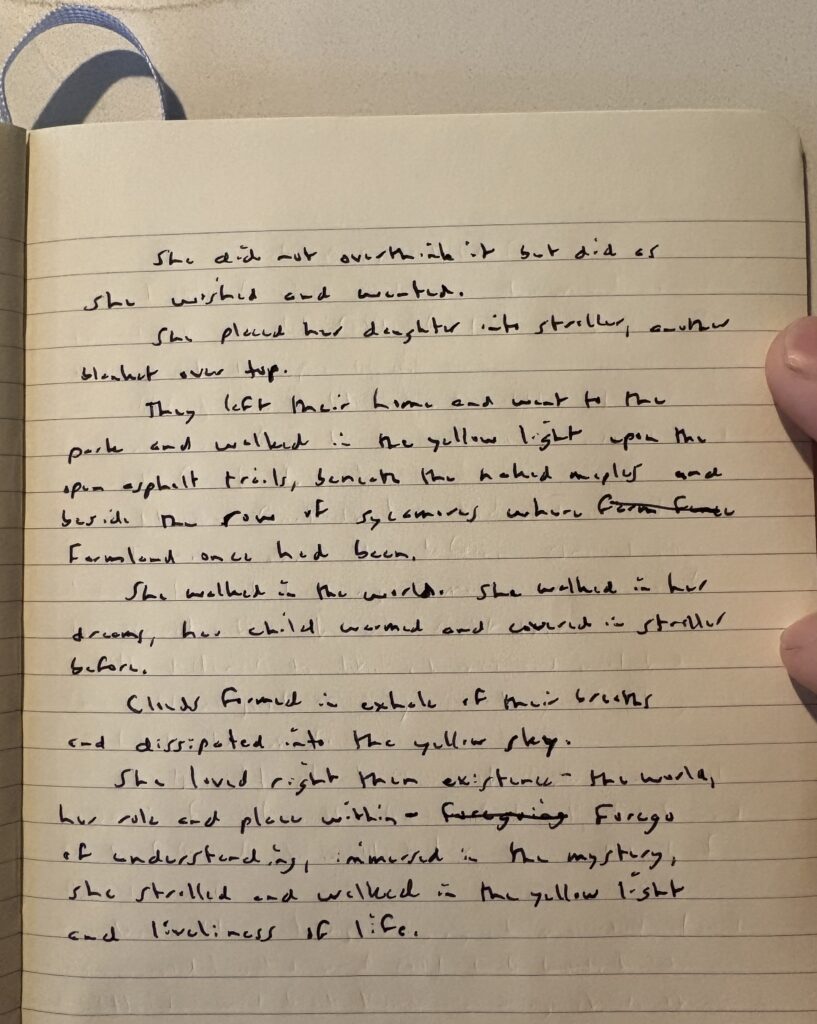 She did not overthink it but did as
she wished and wanted.
She placed her daughter into stroller, another
blanket over top.
They left their home and went to the
park and walked in the yellow light upon the
open asphalt trails, beneath the naked maples and
beside the row of sycamores where farm fence
farmland once had been.
She walked in the world. She walked in her
dreams, her child warmed and covered in stroller
before.
Clouds formed in exhale of their breaths
and dissipated into the yellow sky.
She loved right then existence - the world,
her role and place within - foregoing forego
of understanding, immersed in the mystery,
she strolled and walked in the yellow light
and liveliness of life.